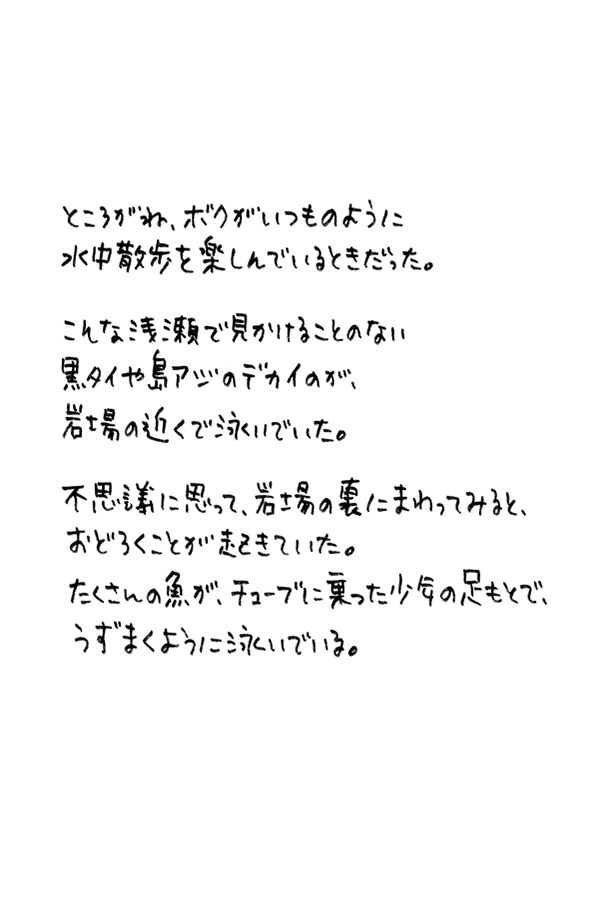 ところがね、ボクがいつものように
水中散歩を楽しんでいるときだった。
こんな浅瀬で見かけることのない
黒タイや島アジのデカイのが、
岩場の近くで泳いでいた。
不思議に思って、岩場の裏にまわってみると、
おどろくことが起きていた。
たくさんの魚が、チューブに乗った少年の足もとで、
うずまくように泳いでいる。